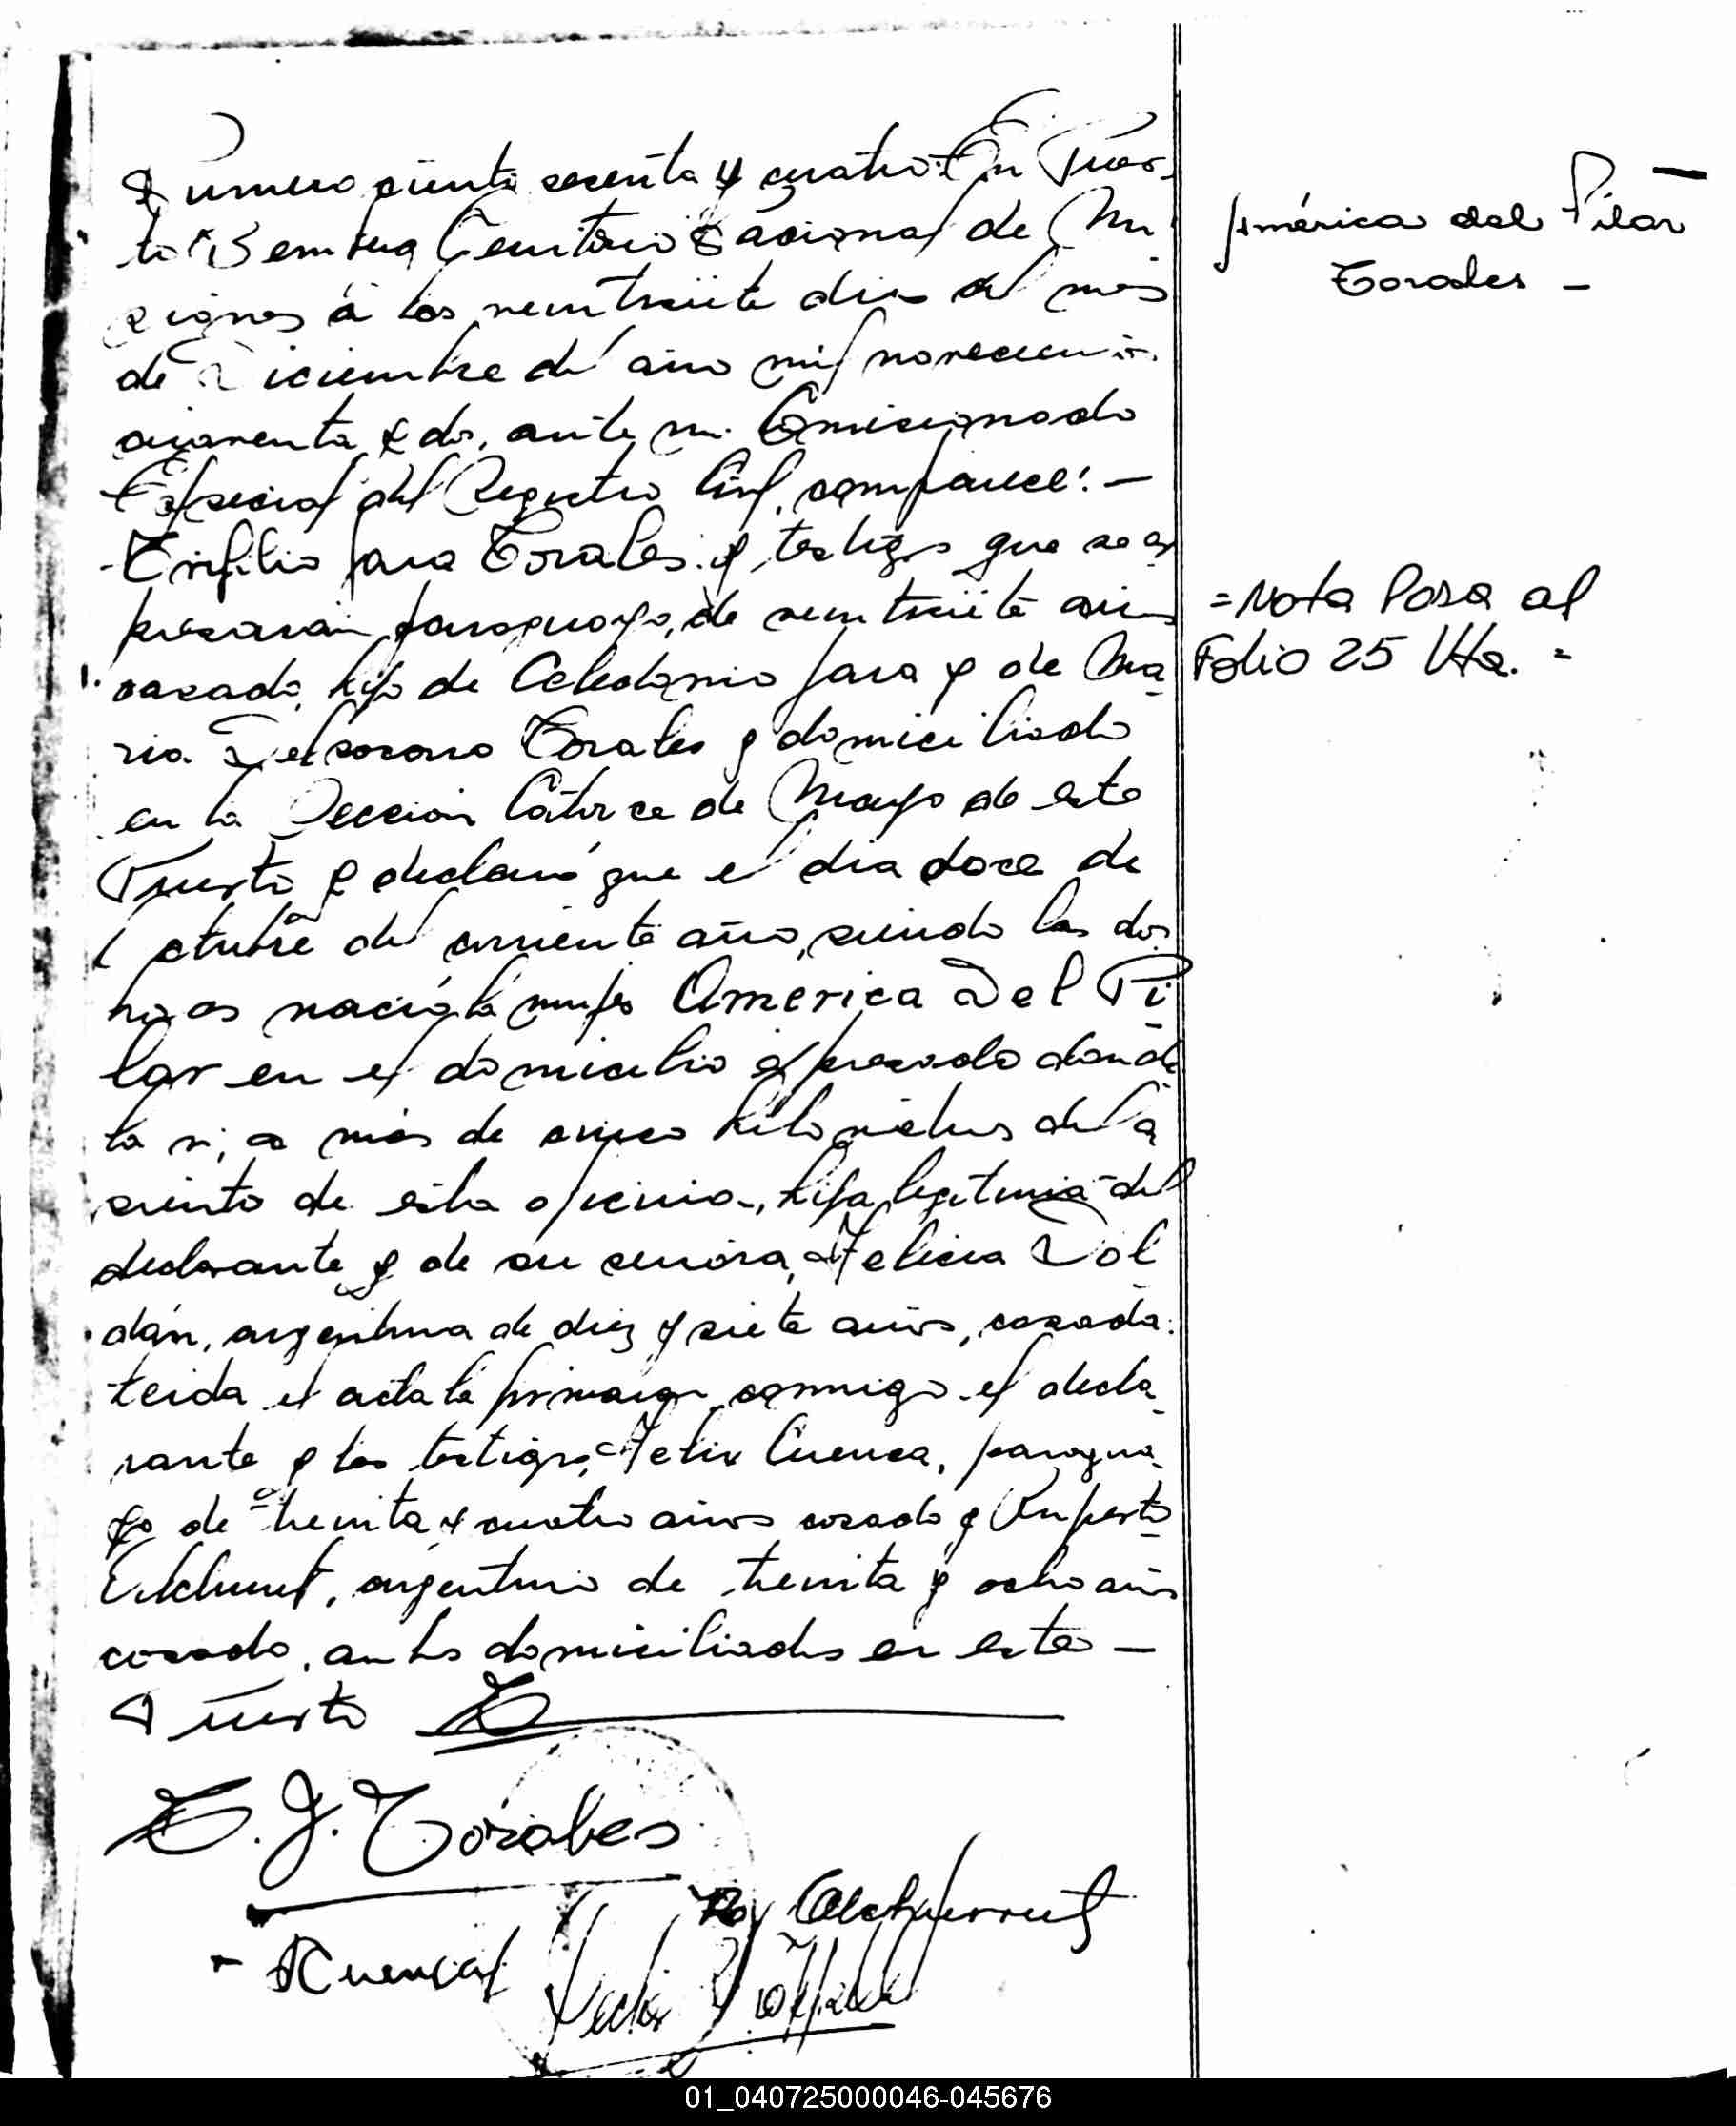 Numero ciento sesenta y cuatro: En Puer-
to Bemberg Territorio Nacional de Mi
siones a los veintisiete dias del mes
de Diciembre del año mil novecientos
cuarenta y dos, ante mi Comisionado
Especial del Registro Civil, comparece: -
Trifilio Jara Torales y testigos que se ex
presarán, paraguayo, de veintisiete años
casado, hijo de Celedonio Jara y de Ma-
ria Del Torales y domiciliado
en la Seccion Catorce de Mayo de este
Puerto y declaró que el dia doce de
Octubre del corriente año, siendo las dos
horas nació la mujer America Del Pi-
lar en el domicilio expresado donde
la vi, a más de cinco kilometros del a
siento de esta oficina, hija legitima del
declarante y de su señora, Felicia Rol-
dán, argentina de diez y siete años, casada.
Leida el acta la firmaron conmigo el decla-
rante y los testigos, Felix Cuenca, paragua-
yo de treinta y cuatro años casado y Ruperto
argentino de treinta y ocho años
casado, ambos domiciliados en este -
Puerto
T. J. Torales
R
Cuenca
América del Pilar
Torales -
= Nota Pasa al
Folio 25 Vta. =
01_040725000046-045676